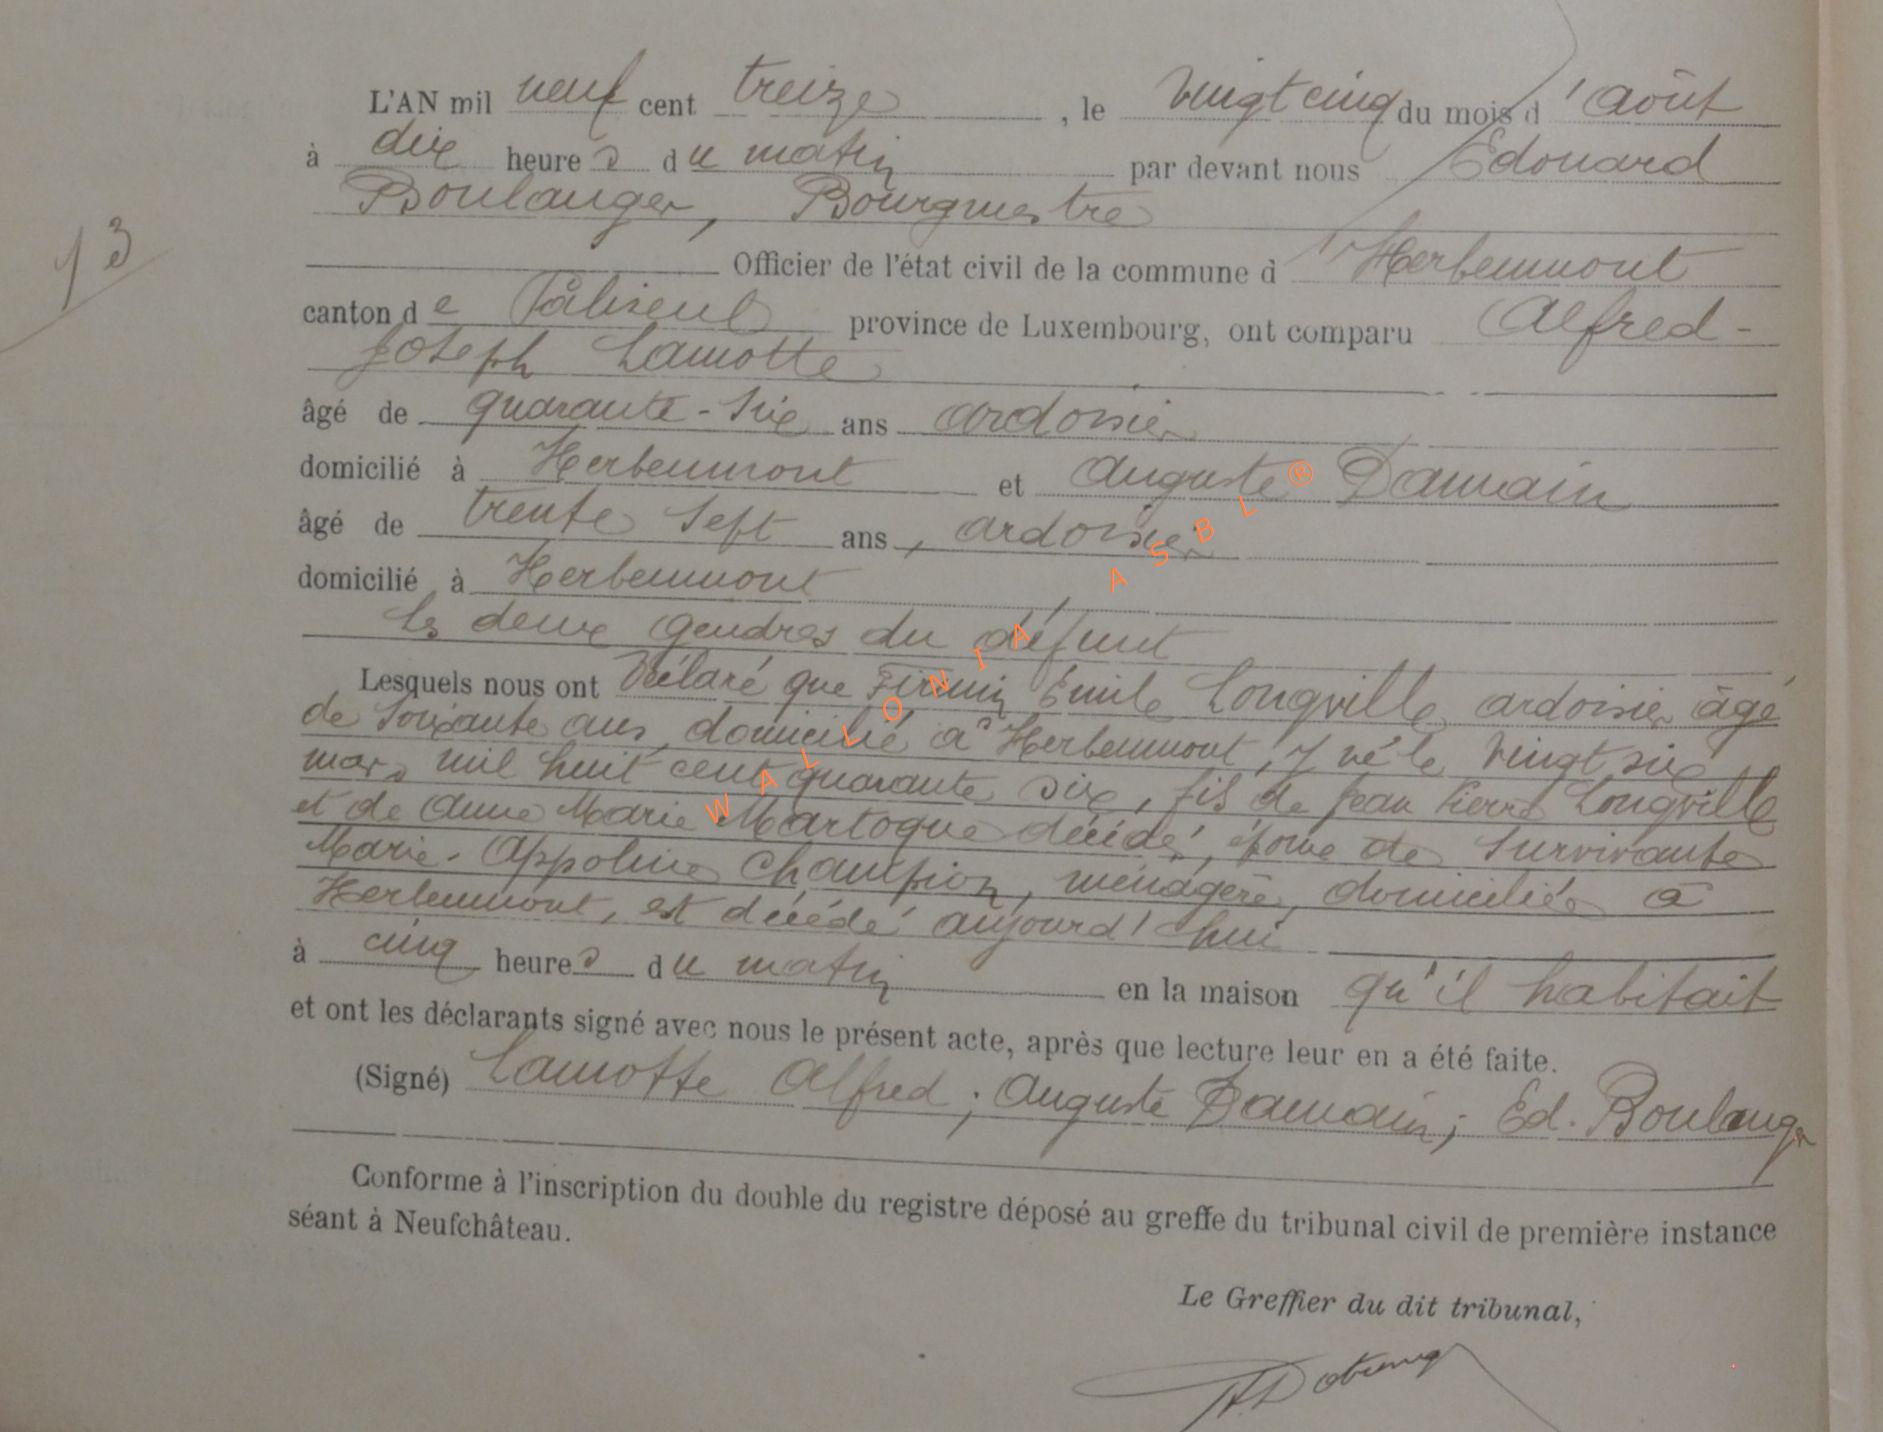 L'AN mil neuf cent treize , le vingt cinq du mois d 'août
à dix heure s du matin par devant nous Edouard
Boulanger, Bourgmestre
13
Officier de l'état civil de la commune d 'Herbeumont
canton de Paliseul province de Luxembourg, ont comparu Alfred-
Joseph Lamotte
âgé de quarante-six ans ardoisier
domicilié à Herbeumont et Auguste Damain
âgé de trente sept ans, ardoisier
domicilié à Herbeumont
les deux gendres du défunt
Lesquels nous ont déclaré que Firmin Emile Longville ardoisier âgé
de soixante ans, domicilié à Herbeumont, y né le vingt six
mars mil huit cent quarante six, fils de Jean Pierre Longville
et de Anne Marie Martoque décédé, époux de survivante
Marie-Appoline Champion, ménagère, domiciliée à
Herbeumont, est décédé aujourd'hui
à cinq heures du matin en la maison qu'il habitait
et ont les déclarants signé avec nous le présent acte, après que lecture leur en a été faite.
(Signé) Lamotte Alfred; Auguste Damain; Ed. Boulanger
Conforme à l'inscription du double du registre déposé au greffe du tribunal civil de première instance
séant à Neufchâteau.
Le Greffier du dit tribunal,
WALLONIA ASBL ®